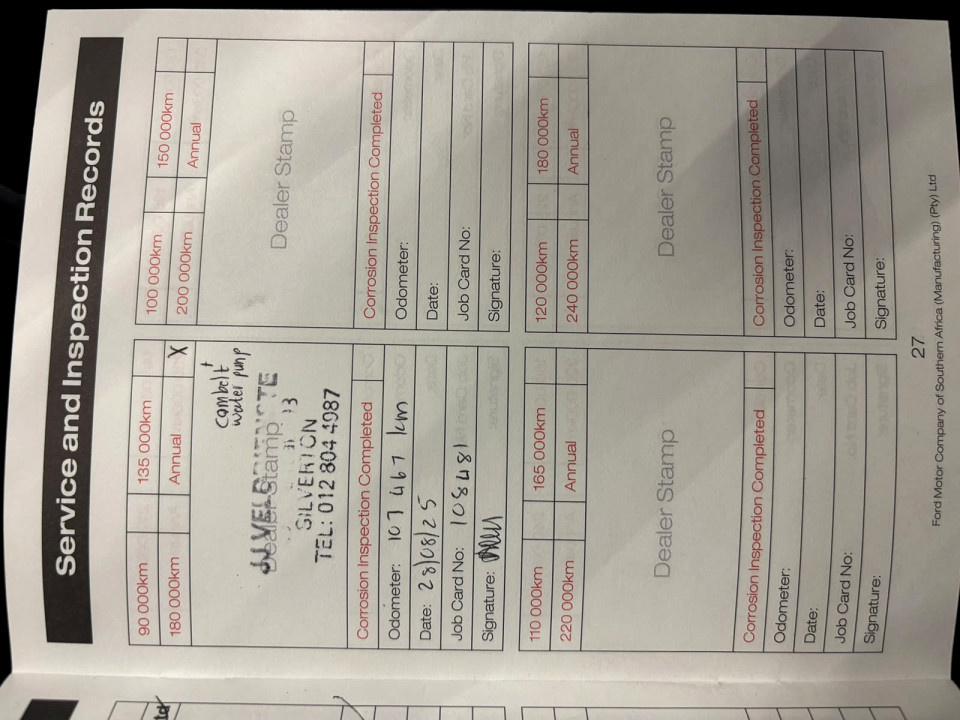 Service and Inspection Records
90 000km 135 000km
180 000km Annual X
cambelt
+
water pump
Dealer Stamp
SILVERTON
TEL: 012 804 4987
Corrosion Inspection Completed
Odometer: 107 467 km
Date: 28/08/25
Job Card No: 108481
Signature:
100 000km 150 000km
200 000km Annual
Dealer Stamp
Corrosion Inspection Completed
Odometer:
Date:
Job Card No:
Signature:
110 000km 165 000km
220 000km Annual
Dealer Stamp
Corrosion Inspection Completed
Odometer:
Date:
Job Card No:
Signature:
120 000km 180 000km
240 000km Annual
Dealer Stamp
Corrosion Inspection Completed
Odometer:
Date:
Job Card No:
Signature:
27
Ford Motor Company of Southern Africa (Manufacturing) (Pty) Ltd